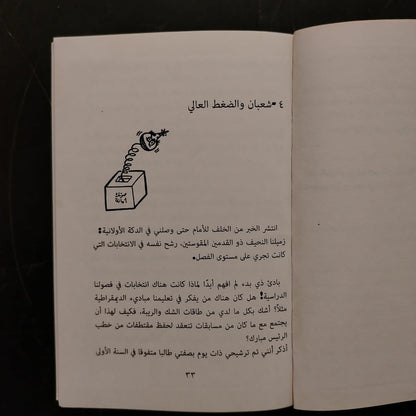 ٤ -شعبان والضغط العالي
انتشر الخبر من الخلف للأمام حتى وصلني في الدكة الأولانية!
زميلنا النحيف ذو القدمين المقوستين، رشح نفسه في الانتخابات التي
كانت تجري على مستوى الفصل.
بادئ ذي بدء لم افهم أبدًا لماذا كانت هناك انتخابات في فصولنا
الدراسية! هل كان هناك من يفكر في تعليمنا مباديء الديمقراطية
مثلاً؟ أشك بكل ما لدي من طاقات الشك والريبة، فكيف لهذا أن
يجتمع مع ما كان من مسابقات تنعقد لحفظ مقتطفات من خطب
الرئيس مبارك؟
أذكر أنني تم ترشيحي ذات يوم بصفتي طالبا متفوقا في السنة الأولى
٣٣